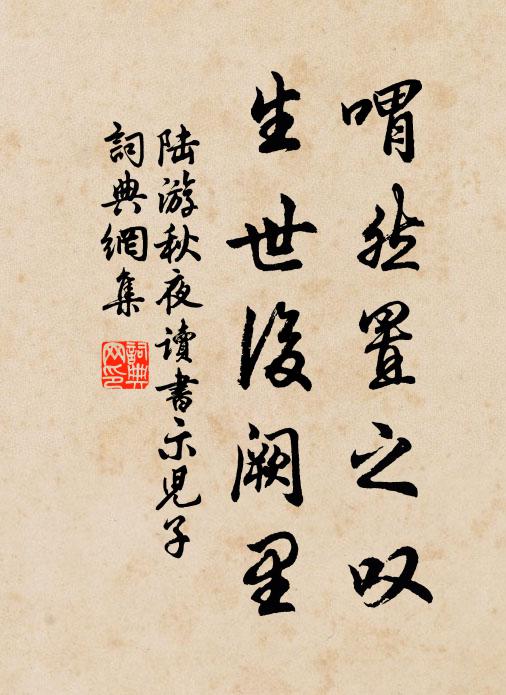 喟然置之叹
生世後阙里
陆游秋夜读书示儿子
詞典網集
詞典网印